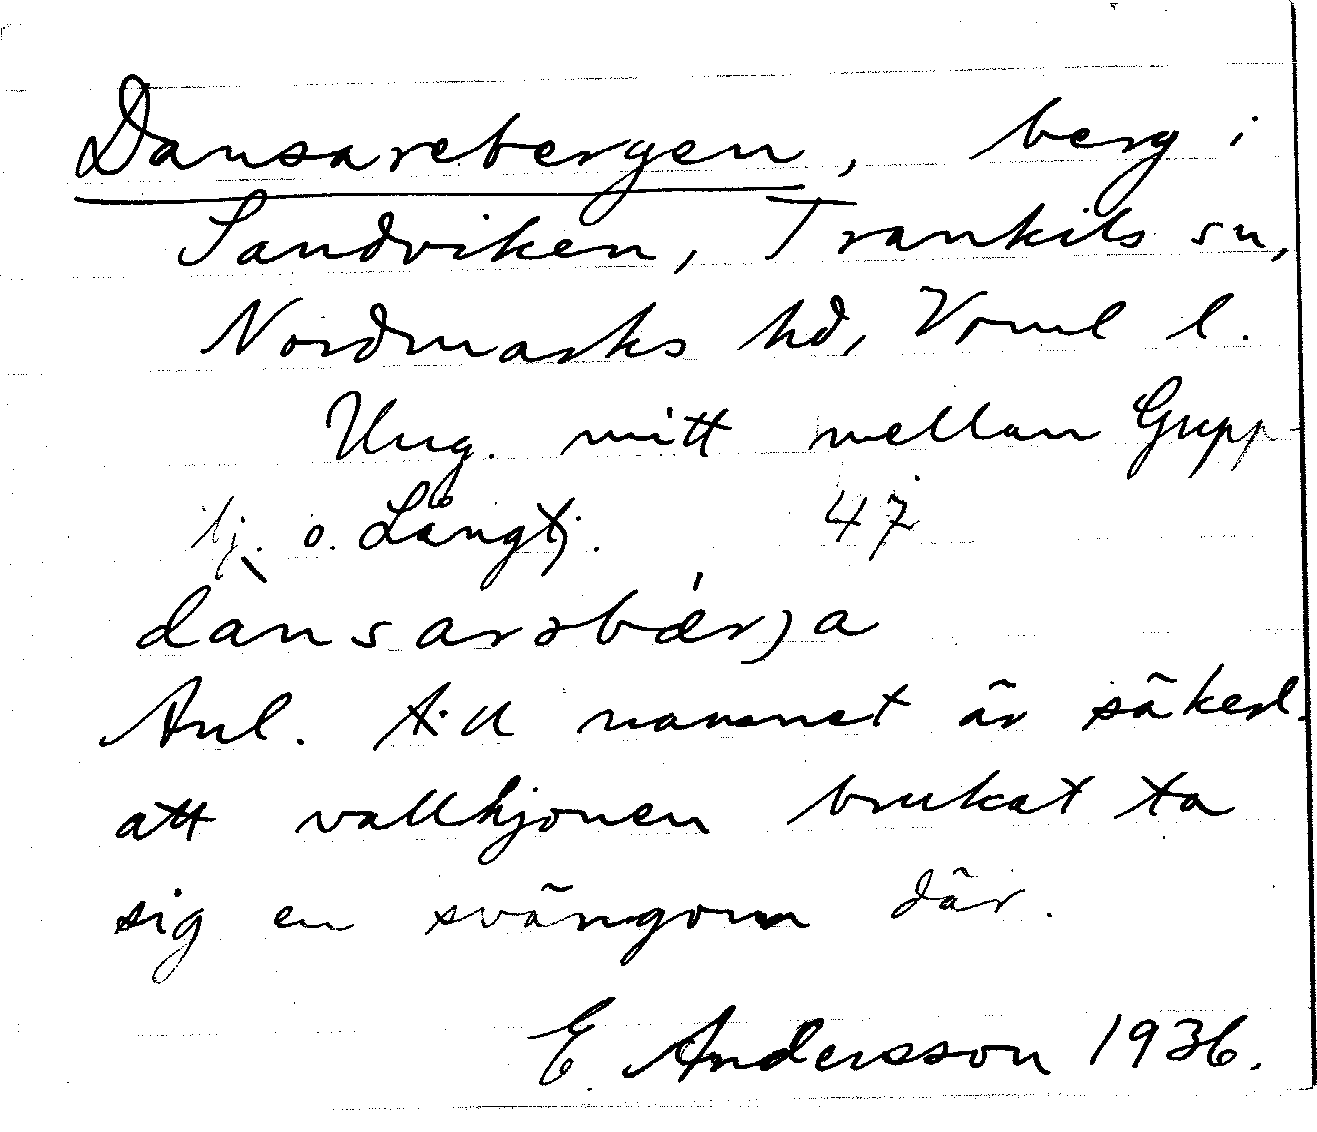 Dansarebergen, berg i
Sandviken, Trankils sn,
Nordmarks hd, Vrml l.
Ung. mitt mellan Gupp-
tj. o. Långtj. 47
dànsarəbǽrja
Anl. till namnet är säkerl.
att vallhjonen brukat ta
sig en svängom där.
E. Andersson 1936.